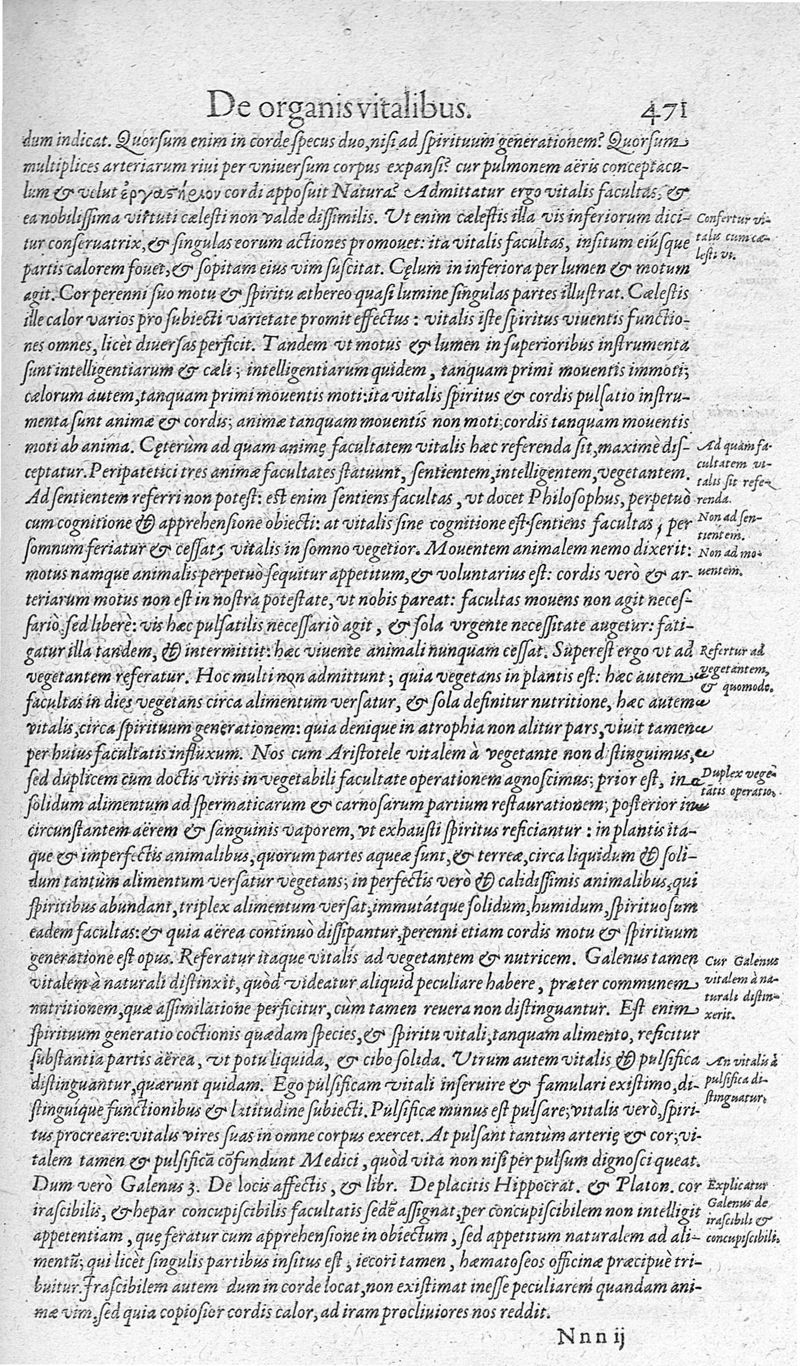 De organis vitalibus. 471
dum indicat. Quorsum enim in corde specus duo, nisi ad spirituum generationem? Quorsum
multiplices arteriarum riui per vniuersum corpus expansi? cur pulmonem aëris conceptacu-
lum & velut ἐργαστήριον cordi apposuit Natura? Admittatur ergo vitalis facultas, &
ea nobilissima virtuti cælesti non valde dissimilis. Ut enim cælestis illa vis inferiorum dici-
tur conseruatrix, & singulas eorum actiones promouet: ita vitalis facultas, insitum eiusque
partis calorem fouet, & sopitam eius vim suscitat. Cęlum in inferiora per lumen & motum
agit. Cor perenni suo motu & spiritu æthereo quasi lumine singulas partes illustrat. Cælestis
ille calor varios pro subiecti varietate promit effectus: vitalis iste spiritus viuentis functio-
nes omnes, licèt diuersas perficit. Tandem vt motus & lumen in superioribus instrumenta
sunt intelligentiarum & cæli; intelligentiarum quidem, tanquam primi mouentis immoti;
cælorum autem, tanquam primi mouentis moti: ita vitalis spiritus & cordis pulsatio instru-
menta sunt animæ & cordis; animæ tanquam mouentis non moti; cordis tanquam mouentis
moti ab anima. Cęterùm ad quam animę facultatem vitalis hæc referenda sit, maximè dis-
ceptatur. Peripatetici tres animæ facultates statuunt, sentientem, intelligentem, vegetantem.
Ad sentientem referri non potest: est enim sentiens facultas, vt docet Philosophus, perpetuò
cum cognitione & apprehensione obiecti: at vitalis sine cognitione est. sentiens facultas, per
somnum feriatur & cessat; vitalis in somno vegetior. Mouentem animalem nemo dixerit:
motus namque animalis perpetuò sequitur appetitum, & voluntarius est: cordis verò & ar-
teriarum motus non est in nostra potestate, vt nobis pareat: facultas mouens non agit neces-
sariò. sed liberè: vis hæc pulsatilis necessariò agit, & sola vrgente necessitate augetur: fati-
gatur illa tandem, & intermittit: hæc viuente animali nunquam cessat. Superest ergo vt ad
vegetantem referatur. Hoc multi non admittunt; quia vegetans in plantis est: hæc autem
facultas in dies vegetans circa alimentum versatur, & sola definitur nutritione, hæc autem
vitalis, circa spirituum generationem: quia denique in atrophia non alitur pars, viuit tamen
per huius facultatis influxum. Nos cum Aristotele vitalem à vegetante non distinguimus,
sed duplicem cum doctis viris in vegetabili facultate operationem agnoscimus; prior est, in
solidum alimentum ad spermaticarum & carnosarum partium restaurationem; posterior in
circunstantem aërem & sanguinis vaporem, vt exhausti spiritus reficiantur: in plantis ita-
que & imperfectis animalibus, quorum partes aqueæ sunt, & terreæ, circa liquidum & soli-
dum tantùm alimentum versatur vegetans; in perfectis verò & calidissimis animalibus, qui
spiritibus abundant, triplex alimentum versat, immutátque solidum, humidum, spirituosum
eadem facultas: & quia aërea continuò dissipantur, perenni etiam cordis motu & spirituum
generatione est opus. Referatur itaque vitalis ad vegetantem & nutricem. Galenus tamen
vitalem à naturali distinxit, quòd videatur aliquid peculiare habere, præter communem
nutritionem, quæ assimilatione perficitur, cùm tamen reuera non distinguantur. Est enim
spirituum generatio coctionis quædam species, & spiritu vitali, tanquam alimento, reficitur
substantia partis aërea, vt potu liquida, & cibo solida. Utrum autem vitalis & pulsifica
distinguantur, quærunt quidam. Ego pulsificam vitali inseruire & famulari existimo, di-
stinguique functionibus & latitudine subiecti. Pulsificæ munus est pulsare; vitalis verò, spiri-
tus procreare: vitalis vires suas in omne corpus exercet. At pulsant tantùm arterię & cor; vi-
talem tamen & pulsificā cōfundunt Medici, quòd vita non nisi per pulsum dignosci queat.
Dum verò Galenus 3. De locis affectis, & libr. De placitis Hippocrat. & Platon. cor
irascibilis, & hepar concupiscibilis facultatis sedē assignat, per concupiscibilem non intelligit
appetentiam, quę feratur cum apprehensione in obiectum, sed appetitum naturalem ad ali-
mentū; qui licèt singulis partibus insitus est, iecori tamen, hæmatoseos officinæ præcipuè tri-
buitur. Irascibilem autem dum in corde locat, non existimat inesse peculiarem quandam ani-
mæ vim, sed quia copiosior cordis calor, ad iram procliuiores nos reddit.
Nnn ij
Confertur vi-
talis cum cæ-
lesti vi.
Ad quàm fa-
cultatem vi-
talis sit refe-
renda.
Non ad sen-
tientem.
Non ad mo-
uentem.
Refertur ad
vegetantem,
& quomodo.
Duplex vege-
tātis operatio.
Cur Galenus
vitalem à na-
turali distin-
xerit.
An vitalis à
pulsifica di-
stinguatur.
Explicatur
Galenus de
irascibili &
concupiscibili.